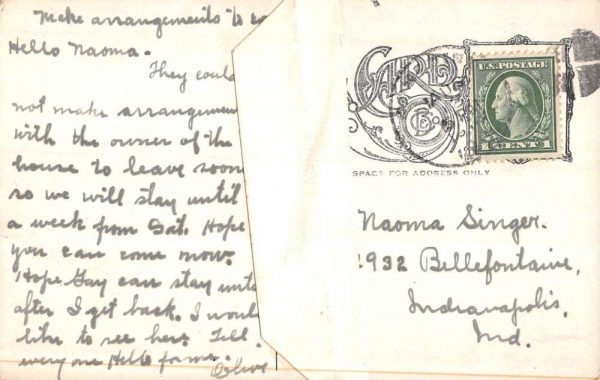 Make arrangements to
Hello Naoma.
They could
not make arrangement
with the owner of the
house to leave soon
so we will stay until
a week from Sat. Hope
you can come now.
Hope Gay can stay unti
after I get back. I woul
like to see her. Tell
everyone Hello for me.
Olive
U.S. POSTAGE
CENT
SPACE FOR ADDRESS ONLY
Naoma Singer.
1932 Bellefontaine,
Indianapolis,
Ind.